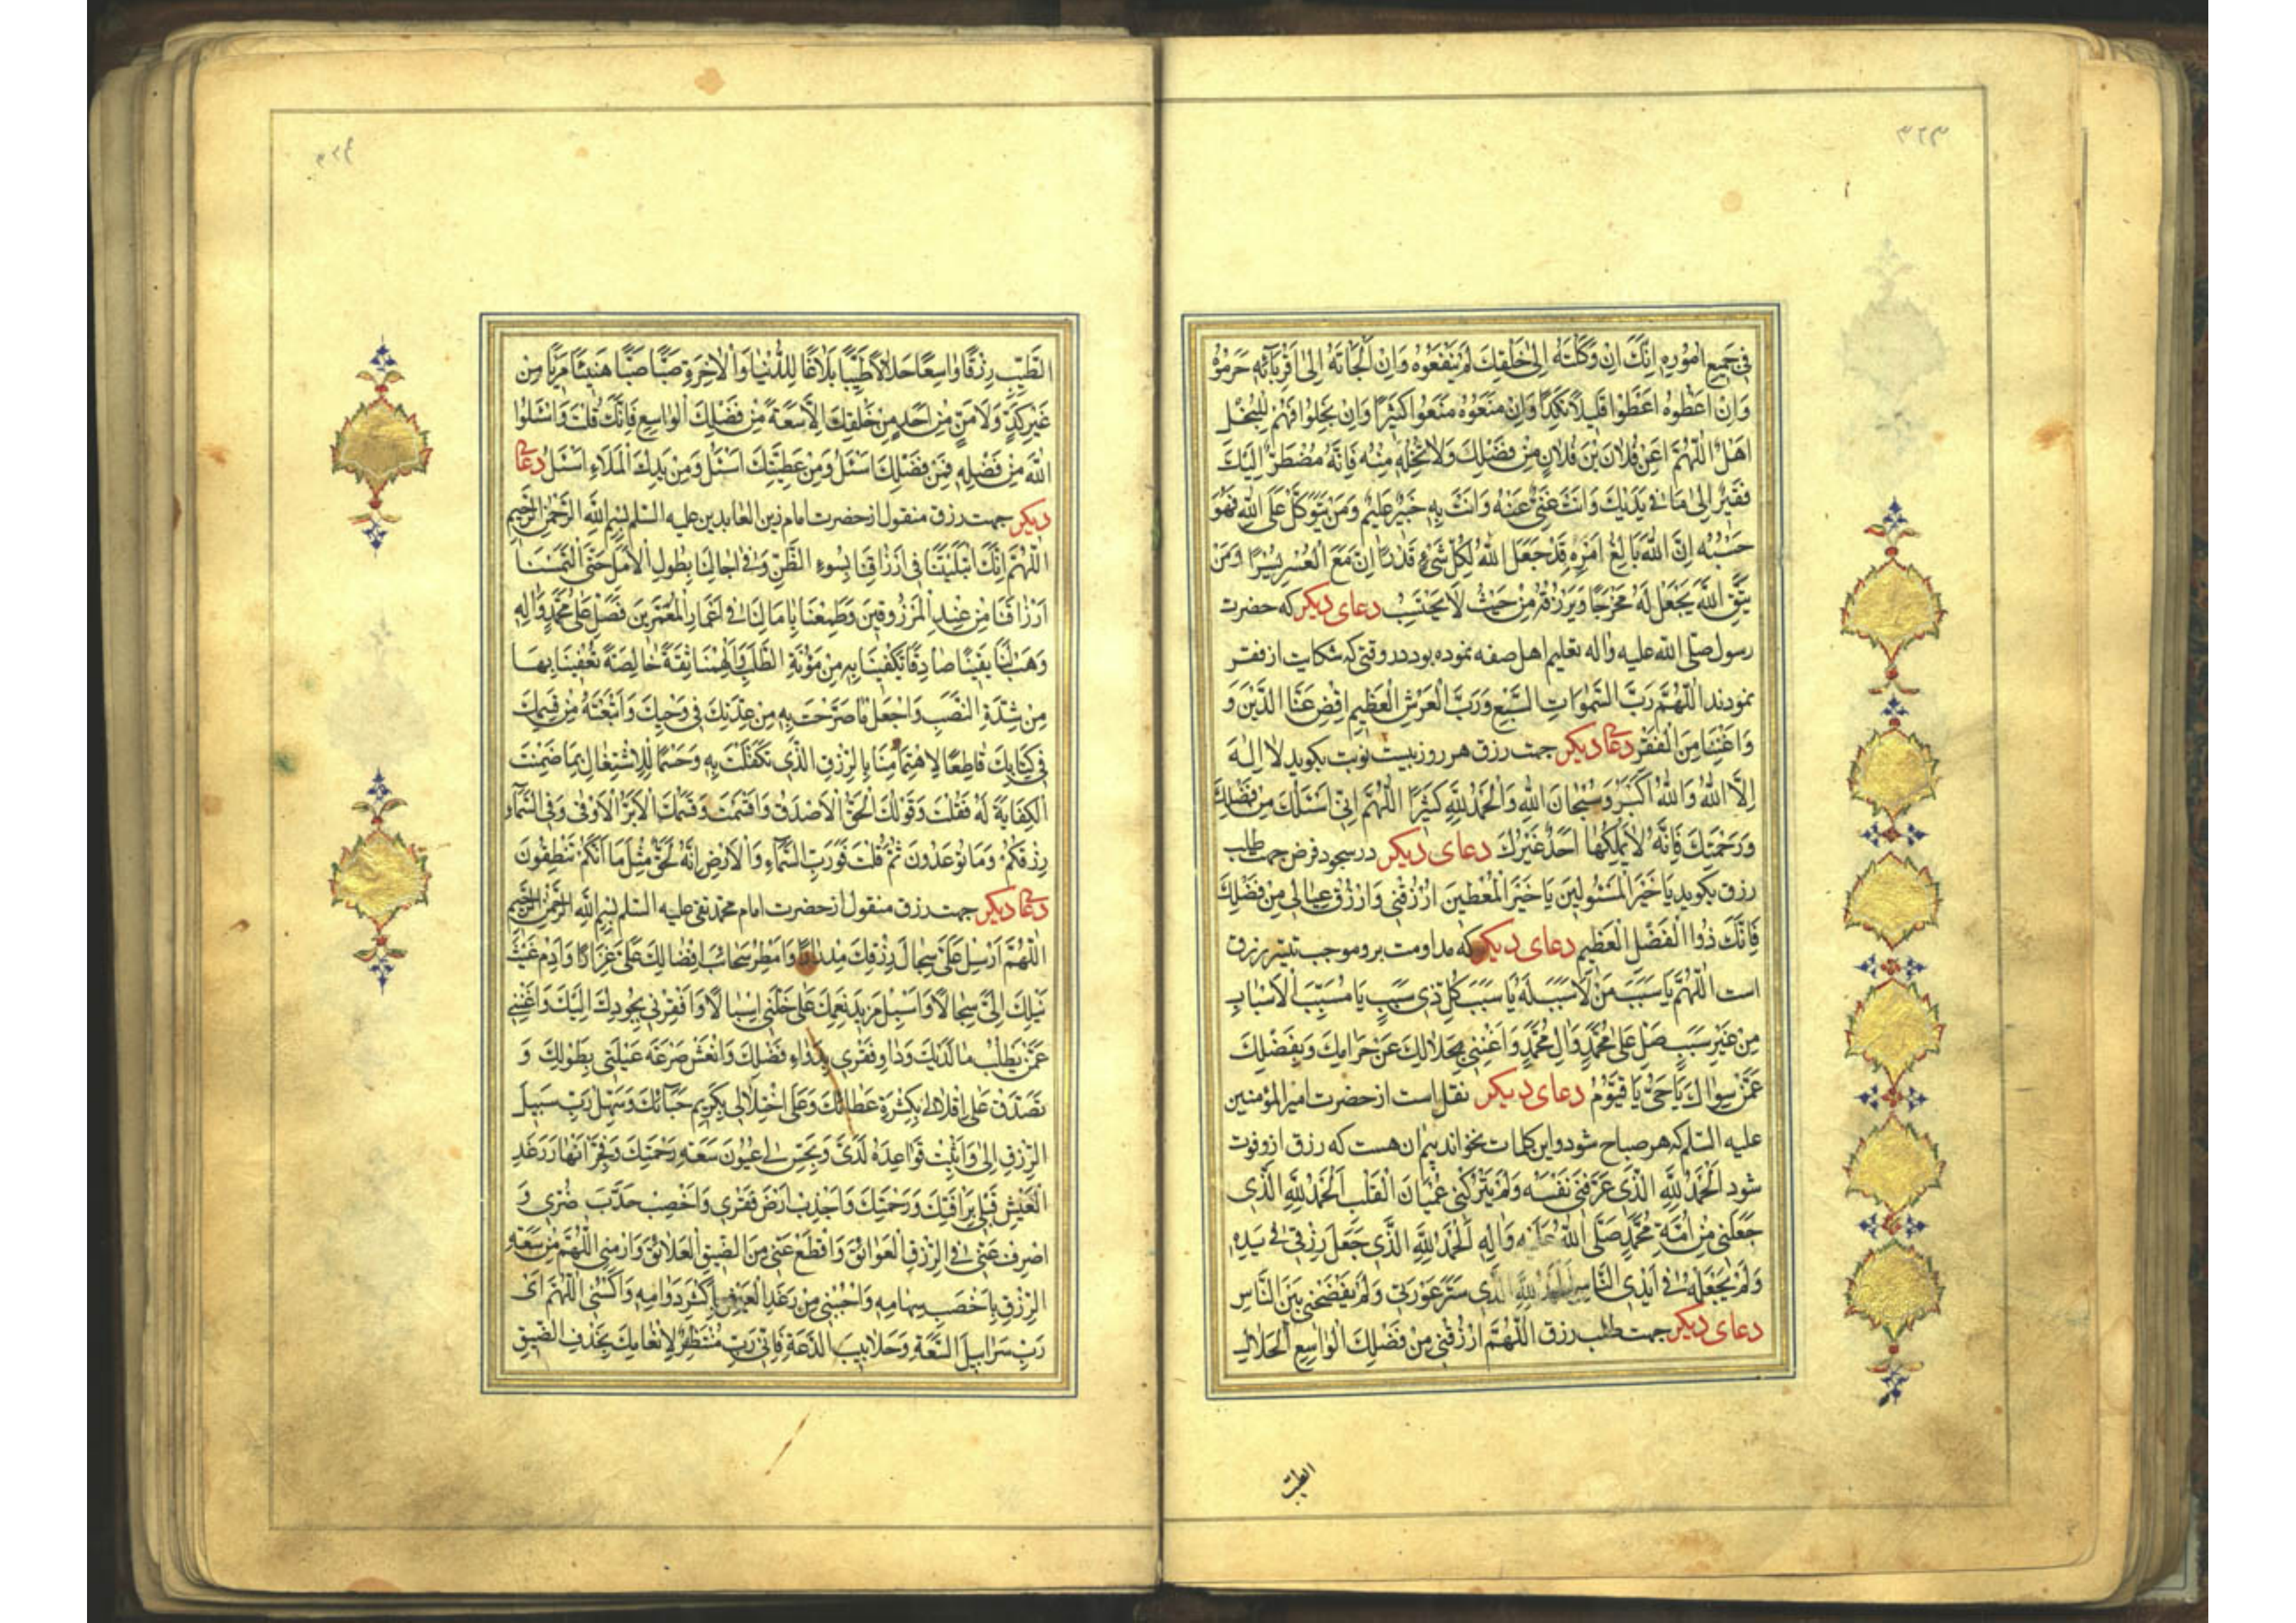 ٣٢٣
فی جَمیعِ اُمُورِهِ اِنَّکَ اِنْ وَکَلْتَهُ اِلیٰ خَلْقِکَ لَمْ یَنْفَعُوهُ وَاِنْ اَلْجَاْتَهُ اِلیٰ اَقْرِبائِهِ حَرَمُوهُ
وَاِنْ اَعْطَوْهُ اَعْطَوْا قَلیلاً نَکِدًا وَاِنْ مَنَعُوهُ مَنَعُوا کَثیرًا وَاِنْ بَخِلُوا فَهُمْ لِلْبُخْلِ
اَهْلٌ اَللّٰهُمَّ اَغْنِ فُلانَ بْنَ فُلانٍ مِنْ فَضْلِکَ وَلا تُخْلِهِ مِنْهُ فَاِنَّهُ مُضْطَرٌّ اِلَیْکَ
فَقیرٌ اِلیٰ ما فی یَدَیْکَ وَاَنْتَ غَنِیٌّ عَنْهُ وَاَنْتَ بِهِ خَبیرٌ عَلیمٌ وَمَنْ یَتَوَکَّلْ عَلَی اللّٰهِ فَهُوَ
حَسْبُهُ اِنَّ اللّٰهَ بالِغُ اَمْرِهِ قَدْ جَعَلَ اللّٰهُ لِکُلِّ شَیْءٍ قَدْرًا اِنَّ مَعَ الْعُسْرِ یُسْرًا وَمَنْ
یَتَّقِ اللّٰهَ یَجْعَلْ لَهُ مَخْرَجًا وَیَرْزُقْهُ مِنْ حَیْثُ لا یَحْتَسِبُ دعای دیکر که حضرت
رسول صلّی اللّٰه علیه واله تعلیم اهل صفه نموده بود در وقتی که شکایت از فقر
نمودند اَللّٰهُمَّ رَبَّ السَّمٰواتِ السَّبْعِ وَرَبَّ الْعَرْشِ الْعَظیمِ اِقْضِ عَنَّا الدَّیْنَ وَ
وَاَغْنِنا مِنَ الْفَقْرِ دعا دیکر جهت رزق هر روز بیست نوبت بکوید لا اِلٰهَ
اِلاَّ اللّٰهُ وَاللّٰهُ اَکْبَرُ وَسُبْحانَ اللّٰهِ وَالْحَمْدُ لِلّٰهِ کَثیرًا اَللّٰهُمَّ اِنّی اَسْئَلُکَ مِنْ فَضْلِکَ
وَرَحْمَتِکَ فَاِنَّهُ لا یَمْلِکُها اَحَدٌ غَیْرُکَ دعای دیکر در سجود فرض جهت طلب
رزق بکوید یا خَیْرَ الْمَسْئُولینَ یا خَیْرَ الْمُعْطینَ اُرْزُقْنی وَارْزُقْ عِیالی مِنْ فَضْلِکَ
فَاِنَّکَ ذُوا الْفَضْلِ الْعَظیمِ دعای دیکر که مداومت برو موجب تیسّر رزق
است اَللّٰهُمَّ یا سَبَبَ مَنْ لا سَبَبَ لَهُ یا سَبَبَ کُلِّ ذی سَبَبٍ یا مُسَبِّبَ الْاَسْبابِ
مِنْ غَیْرِ سَبَبٍ صَلِّ عَلیٰ مُحَمَّدٍ وَالِ مُحَمَّدٍ وَاَغْنِنی بِحَلالِکَ عَنْ حَرامِکَ وَبِفَضْلِکَ
عَمَّنْ سِواکَ یا حَیُّ یا قَیُّومُ دعای دیکر نقل است از حضرت امیر المؤمنین
علیه السّلم که هر صباح شود و این کلمات نخواند بیم ان هست که رزق ازو فوت
شود اَلْحَمْدُ لِلّٰهِ الَّذی عَرَّفَنی نَفْسَهُ وَلَمْ یَتْرُکْنی عُمْیانَ الْقَلْبِ اَلْحَمْدُ لِلّٰهِ الَّذی
جَعَلَنی مِنْ اُمَّةِ مُحَمَّدٍ صَلَّی اللّٰهُ عَلَیْهِ وَالِهِ اَلْحَمْدُ لِلّٰهِ الَّذی جَعَلَ رِزْقی فی یَدِهِ
وَلَمْ یَجْعَلْهُ فی اَیْدِی النَّاسِ اَلْحَمْدُ لِلّٰهِ الَّذی سَتَرَ عَوْرَتی وَلَمْ یَفْضَحْنی بَیْنَ النَّاسِ
دعای دیکر جهت طلب رزق اَللّٰهُمَّ ارْزُقْنی مِنْ فَضْلِکَ الْواسِعِ الْحَلالِ
الطیّب
٣٢۴
الطَّیِّبِ رِزْقًا واسِعًا حَلالاً طَیِّبًا بَلاغًا لِلدُّنْیا وَالْاٰخِرَةِ صَبًّا صَبًّا هَنیئًا مَریئًا مِنْ
غَیْرِ کَدٍّ وَلا مَنٍّ مِنْ اَحَدٍ مِنْ خَلْقِکَ اِلاَّ سَعَةً مِنْ فَضْلِکَ الْواسِعِ فَاِنَّکَ قُلْتَ وَاسْئَلُوا
اللّٰهَ مِنْ فَضْلِهِ فَمِنْ فَضْلِکَ اَسْئَلُ وَمِنْ عَطِیَّتِکَ اَسْئَلُ وَمِنْ یَدِکَ الْمَلاءِ اَسْئَلُ دعا
دیکر جهت رزق منقول از حضرت امام زین العابدین علیه السّلم بِسْمِ اللّٰهِ الرَّحْمٰنِ الرَّحیمِ
اَللّٰهُمَّ اِنَّکَ ابْتَلَیْتَنا فی اَرْزاقِنا بِسُوءِ الظَّنِّ وَفی اٰجالِنا بِطُولِ الْاَمَلِ حَتَّی الْتَمَسْنا
اَرْزاقَنا مِنْ عِنْدِ الْمَرْزُوقینَ وَطَمِعْنا بِاٰمالِنا فی اَعْمارِ الْمُعَمَّرینَ فَصَلِّ عَلیٰ مُحَمَّدٍ وَالِهِ
وَهَبْ لَنا یَقینًا صادِقًا تَکْفینا بِهِ مِنْ مَؤُنَةِ الطَّلَبِ وَاَلْهِمْنا ثِقَةً خالِصَةً تُعْفینا بِها
مِنْ شِدَّةِ النَّصَبِ وَاجْعَلْ ما صَرَّحْتَ بِهِ مِنْ عِدَتِکَ فی وَحْیِکَ وَاَتْبَعْتَهُ مِنْ قَسَمِکَ
فی کِتابِکَ قاطِعًا لِاهْتِمامِنا بِالرِّزْقِ الَّذی تَکَفَّلْتَ بِهِ وَحَسْمًا لِلْاِشْتِغالِ بِما ضَمِنْتَ
الْکِفایَةَ لَهُ فَقُلْتَ وَقَوْلُکَ الْحَقُّ الْاَصْدَقُ وَاَقْسَمْتَ وَقَسَمُکَ الْاَبَرُّ الْاَوْفیٰ وَفِی السَّماءِ
رِزْقُکُمْ وَما تُوعَدُونَ ثُمَّ قُلْتَ فَوَرَبِّ السَّماءِ وَالْاَرْضِ اِنَّهُ لَحَقٌّ مِثْلَ ما اَنَّکُمْ تَنْطِقُونَ
دعا دیکر جهت رزق منقول از حضرت امام محمد تقی علیه السّلم بِسْمِ اللّٰهِ الرَّحْمٰنِ الرَّحیمِ
اَللّٰهُمَّ اَرْسِلْ عَلَیَّ سِجالَ رِزْقِکَ مِدْرارًا وَاَمْطِرْ سَحائِبَ اِفْضالِکَ عَلَیَّ غِزارًا وَاَدِمْ غَیْثَ
نَیْلِکَ اِلَیَّ سِجالاً وَاَسْبِلْ مَزیدَ نِعَمِکَ عَلیٰ خَلَّتی اِسْبالاً وَاَفْقِرْنی بِجُودِکَ اِلَیْکَ وَاَغْنِنی
عَمَّنْ یَطْلُبُ ما لَدَیْکَ وَداوِ فَقْری بِدَواءِ فَضْلِکَ وَانْعَشْ صَرْعَةَ عَیْلَتی بِطَوْلِکَ وَ
تَصَدَّقْ عَلیٰ اِقْلالی بِکَثْرَةِ عَطائِکَ وَعَلَی اخْتِلالی بِکَریمِ حِبائِکَ وَسَهِّلْ رَبِّ سَبیلَ
الرِّزْقِ اِلَیَّ وَاَثْبِتْ قَواعِدَهُ لَدَیَّ وَبَجِّسْ لی عُیُونَ سَعَةِ رَحْمَتِکَ وَفَجِّرْ اَنْهارَ رَغَدِ
الْعَیْشِ قِبَلی بِرَاْفَتِکَ وَرَحْمَتِکَ وَاَجْدِبْ اَرْضَ فَقْری وَاَخْصِبْ جَدْبَ ضُرّی وَ
اصْرِفْ عَنّی فِی الرِّزْقِ الْعَوائِقَ وَاقْطَعْ عَنّی مِنَ الضّیقِ الْعَلائِقَ وَارْمِنی اَللّٰهُمَّ مِنْ سَعَةِ
الرِّزْقِ بِاَخْصَبِ سِهامِهِ وَاحْبُنی مِنْ رَغَدِ الْعَیْشِ بِاَکْثَرِ دَوامِهِ وَاکْسُنی اَللّٰهُمَّ اَیْ
رَبِّ سَرابیلَ السَّعَةِ وَجَلابیبَ الدَّعَةِ فَاِنّی رَبِّ مُنْتَظِرٌ لِاِنْعامِکَ بِحَذْفِ الضّیقِ